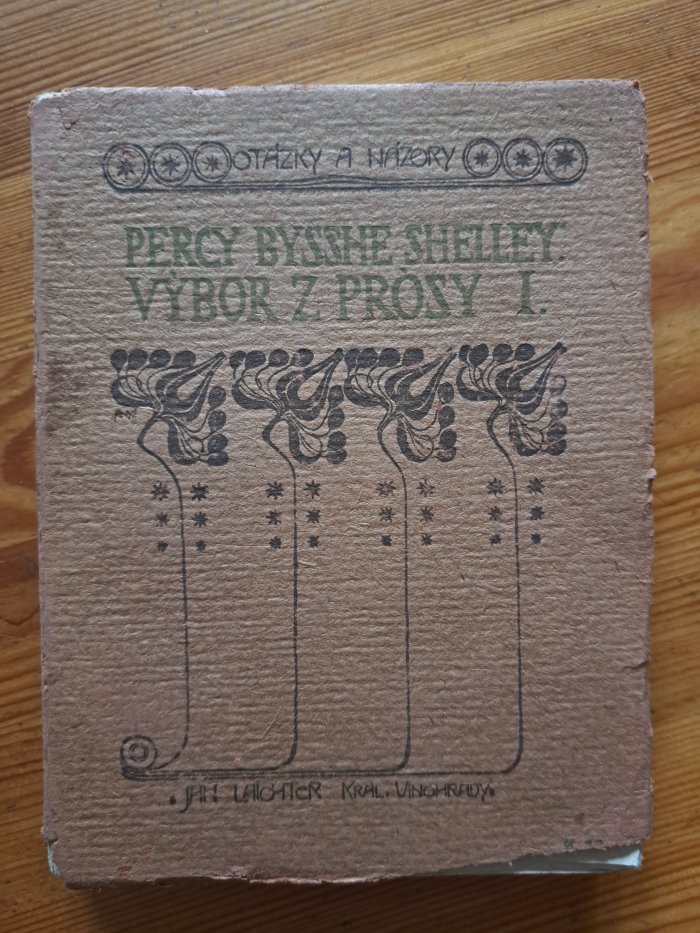 OTÁZKY A NÁZORY
PERCY BYSSHE SHELLEY:
VÝBOR Z PRÓSY I.
JAN LAICHTER KRÁL. VINOHRADY.